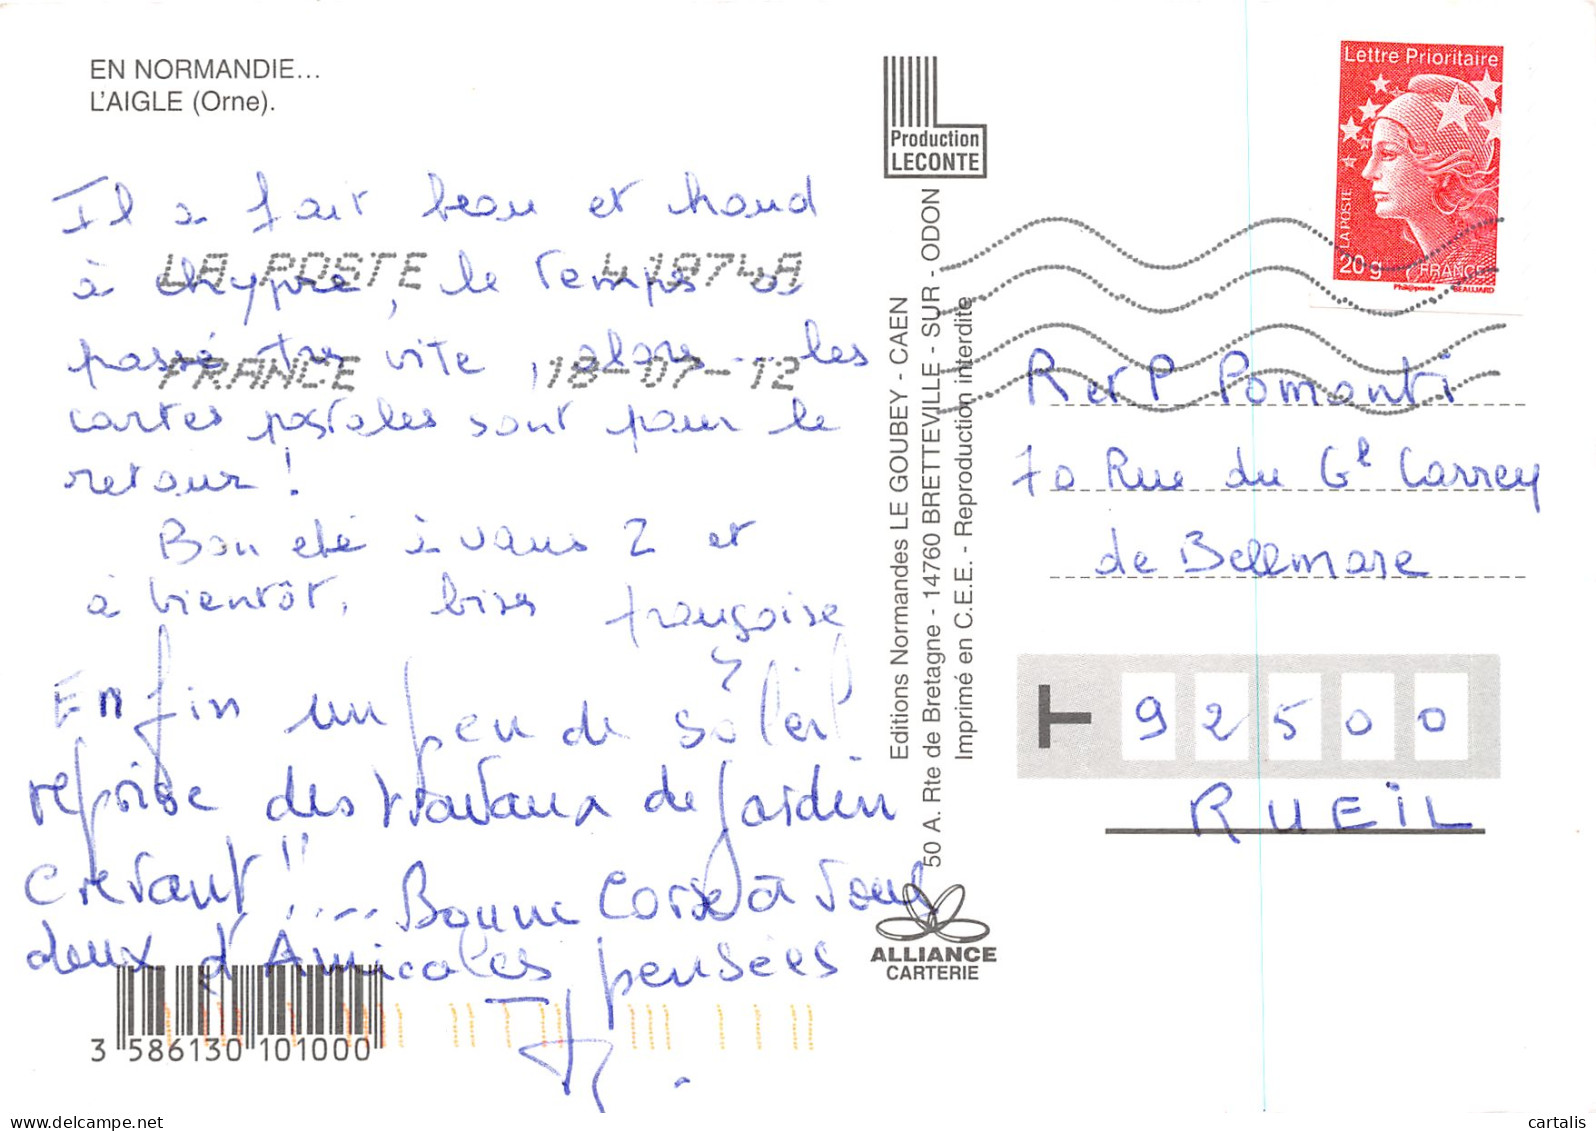 EN NORMANDIE...
L'AIGLE (Orne).
Il a fait beau et chaud
à chypre, le temps a
passé très vite, alors les
cartes postales sont pour le
retour !
Bon été à vous 2 et
à bientôt, bises françoise
Enfin un peu de soleil
reprise des travaux de jardin
crevant !! .... Bonne Corse à vous
deux d'Amicales pensées
LA POSTE 41874A
FRANCE 18-07-12
3 586130 101000
Production
LECONTE
Editions Normandes LE GOUBEY - CAEN
50 A. Rte de Bretagne - 14760 BRETTEVILLE - SUR - ODON
Imprimé en C.E.E. - Reproduction interdite
ALLIANCE
CARTERIE
Lettre Prioritaire
LA POSTE
20g FRANCE
Phil@poste BEAUJARD
R et P Pomonti
70 Rue du Gl Carrey
de Bellemare
T 92500
RUEIL
delcampe.net
cartalis